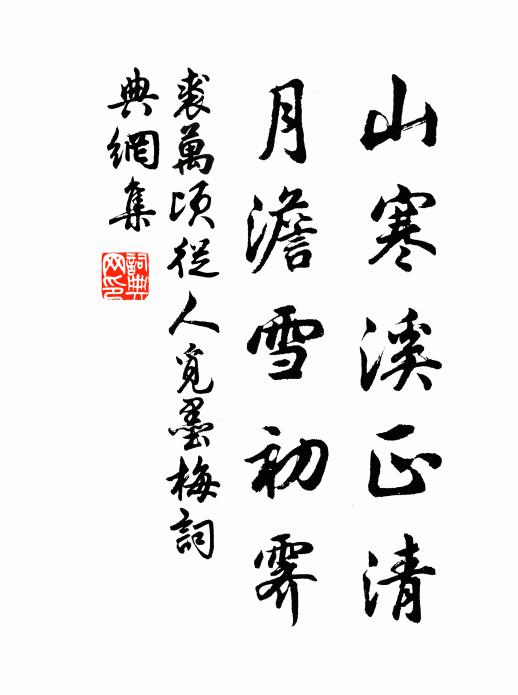 山寒溪正清
月澹雪初霽
裘萬頃從人覓墨梅詞
典網集
詞典网印